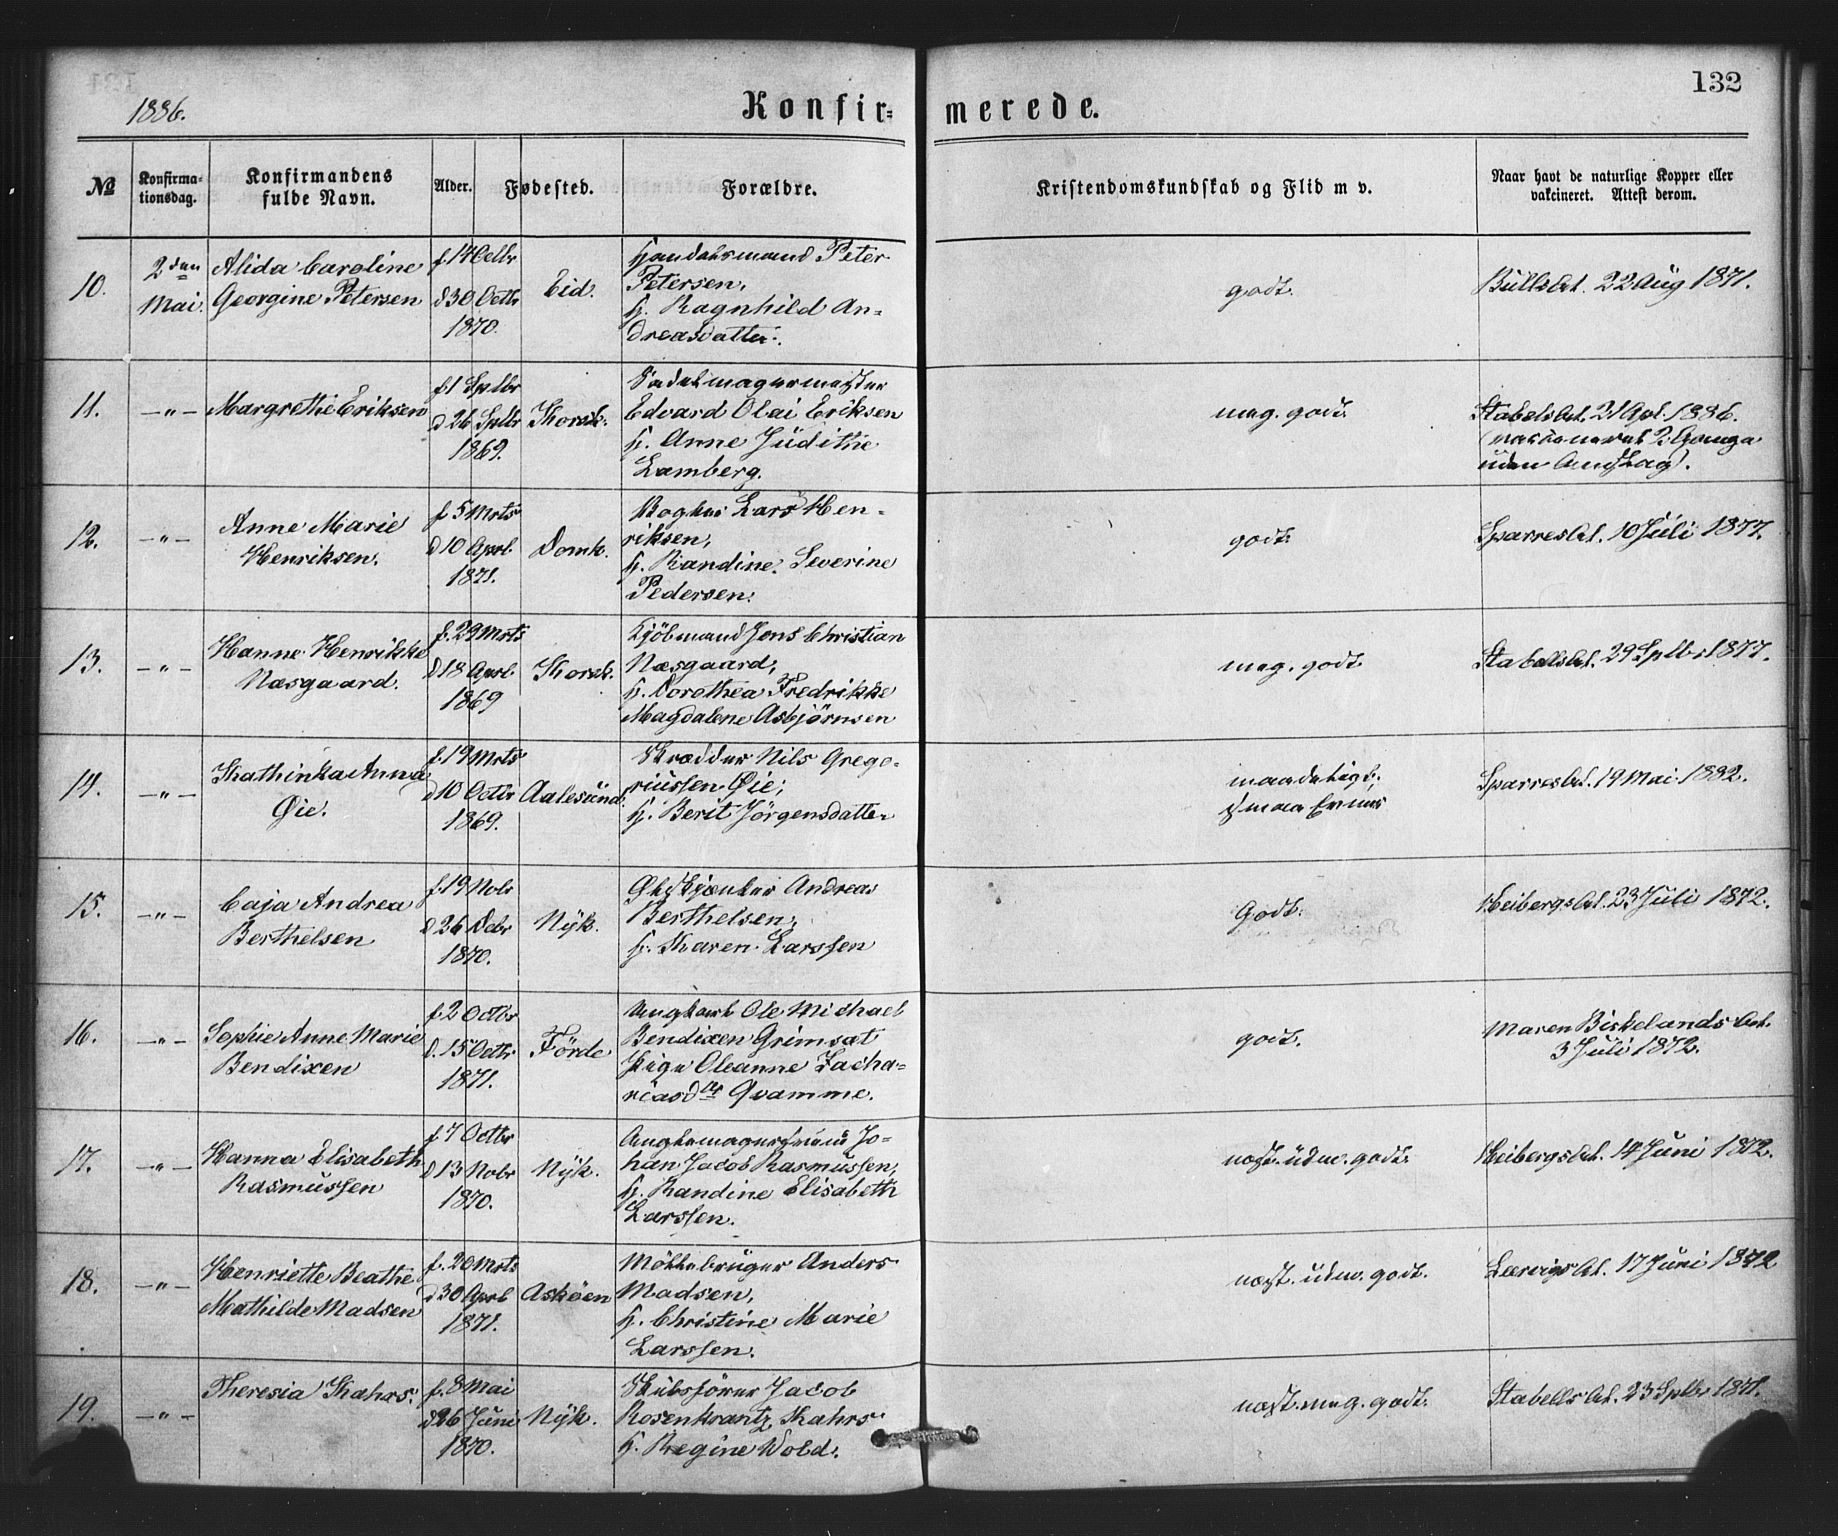 132
1886.
Konfir=
merede.
№
Konfirma=
tionsdag.
Konfirmandens
fulde Navn.
Alder.
Fødested.
Forældre.
Kristendomskundskab og Flid m v.
Naar havt de naturlige Kopper eller
vakcineret. Attest derom.
10.
2den
Mai.
Alida Caroline
Georgine Petersen
f. 14 Octbr
d 30 Octbr
1870.
Eid.
Handelsmand Peter
Petersen,
H. Ragnhild An=
dreasdatter.
godt.
Bullsat. 22 Aug 1871.
11.
—"—
Margrethe Eriksen
f. 1 Sptbr
d 26 Sptbr
1869.
Korsk.
Sadelmagermester
Edvard Olai Eriksen
H. Anne Judithe
Lamberg.
meg. godt.
Stabelsat. 21 Apl. 1886.
(vaccineret 2 Gange
uden Anslag).
12.
—"—
Anne Marie
Henriksen.
f. 5 Mrts
d 10 Aprl.
1871.
Domk.
Lars Hen=
riksen,
H. Randine Severine
Pedersen.
godt.
Sparresat. 10 Juli 1877.
13.
—"—
Hanne Henrikke
Næsgaard.
f. 29 Mrts
d 18 Aprl.
1869
Korsk.
Kjöbmand Jens Christian
Næsgaard,
H. Dorothea Fredrikke
Magdalene Asbjörnsen
meg. godt.
Stabellsat. 29 Sptbr 1877.
14.
—"—
Kathinka Anna
Øie.
f. 19 Mrts
d 10 Octbr
1869.
Aalesund.
Skrædder Nils Grego=
riussen Øie,
H. Berit Jörgensdatter
maadeligt;
smaa Evner
Sparresat. 19 Mai 1882.
15.
—"—
Caja Andrea
Berthelsen
f. 19 Nobr
d 26 Debr
1870.
Nyk.
Ølskjænker Andreas
Berthelsen,
H. Karen Larssen
Godt.
Heibergsat. 23 Juli 1872.
16.
—"—
Sophie Anne Marie
Bendixen
f. 2 Octbr
d. 15 Octbr
1871.
Förde
Ungkarl Ole Michael
Bendixen Grimsæt
Pige Oleanne Zacha=
riasdtr Qvamme.
godt.
Maren Birkelands At.
3 Juli 1872.
17.
—"—
Hanna Elisabeth
Rasmussen
f. 7 Octbr
d 13 Nobr
1870.
Nyk.
Jo=
han Jacob Rasmussen,
H. Randine Elisabeth
Larssen.
næst. udm. godt.
Heibergsat. 14 Juni 1872.
18.
—"—
Henriette Beathe
Mathilde Madsen
f. 20 Mrts
d 30 Aprl
1871.
Asköen
Möllebruger Anders
Madsen,
H. Christine Marie
Larssen.
næst. udm. godt.
Lærvigsat. 17 Juni 1872
19.
—"—
Theresia Kahrs.
f. 8 Mai
d 26 Juni
1870.
Nyk.
Skibsförer Jacob
Rosenkrantz Kahrs
H. Regine Wold.
næst. meg. godt.
Stabells At. 23 Sptbr 1871.